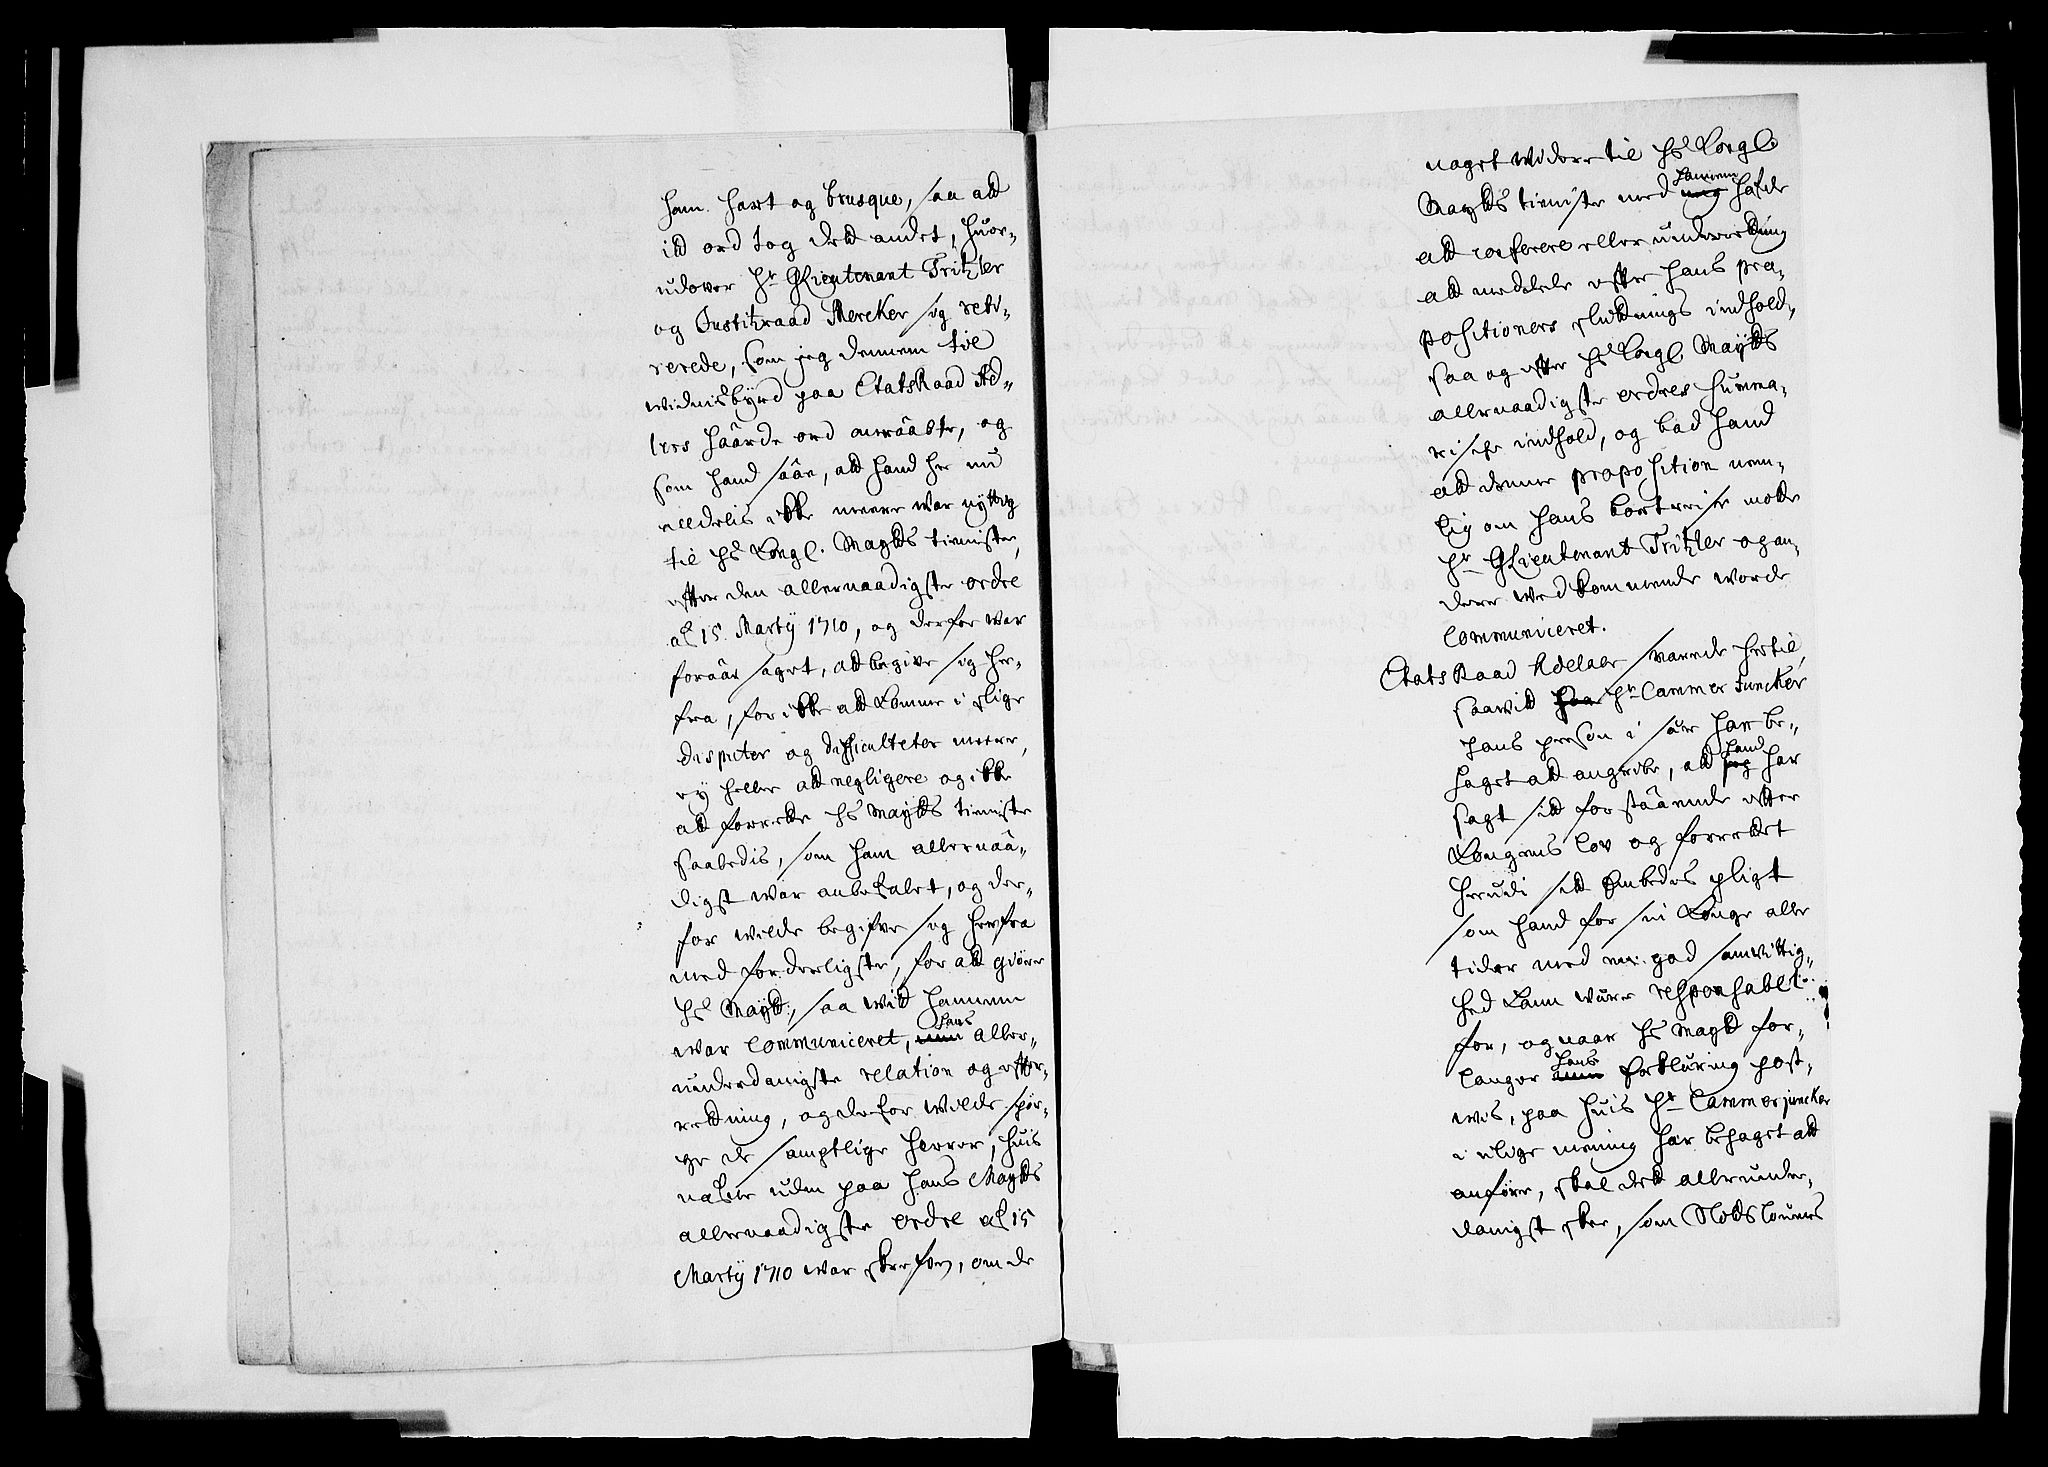 ham hart og brusque, saa att
itt ord tog dett andet, huor-
udover Hr GLieutenant Tritzler
og Justitzraad Mercker sig reti-
rerede, som jeg dennem til
widnisbyrd paa EtatsRaad Ad-
lers håårde ord meråàbte, og
som hand sååe, att hand her nu
alldelis ikke meere war nyttig
til Hs Kongl. Maytts tieniste,
efter den allernaadigste ordre
af 15 Martij 1710, og derfor war
foraarsaget, att begive sig her-
fra, for ikke att komme i slige
disputer og difficulteter meere,
ey heller att negligere og ikke
att forrette Hs Maytts tieniste
saaledis, som ham allernåà-
digst war anbefalet, og der-
for wilde begifve sig herfra
med forderligste, for att giøre
Hs Maytt, saa witt hannem
war communiceret, hans aller-
underdanigste relation og efter-
retning, og derfor wilde spør-
ge de samptlige Herrer, huis
naster uden paa Hans Maytts
allernaadigste ordre af 15
Martij 1710 war skeefen, om de
naget widere til Hs Kongl.
Maytts tieniste med hannem hafde
att conferere eller underretning
att meddele efter hans pro-
positioners slutnings indhold,
saa og efter Hs Kongl Maytts
allernaadigste ordres summa-
riske indhold, og bad hand
att denne proposition nem-
lig om hans bortreise motte
Hr GLieutenant Tritzler og an-
dere wedkommende worde
communiceret.
EtatsRaad Adelaer swarede hertil,
saawitt Hr Cammer Juncker
hans person i sær har be-
haget att angribe, att hand har
sagt sitt forstààende efter
Kongens lov og forrettet
herudi sitt Embedes pligt
som hand for sin Konge alle
tider med en god samvittig-
hed kann være responsabel
for, og naar Hs Maytt for-
langer hans Erklæring post-
wis, paa huis Hr Cammerjuncker
i slige mening har behaget att
anføre, skal dett allerunder-
danigst skee, som Slotslovens